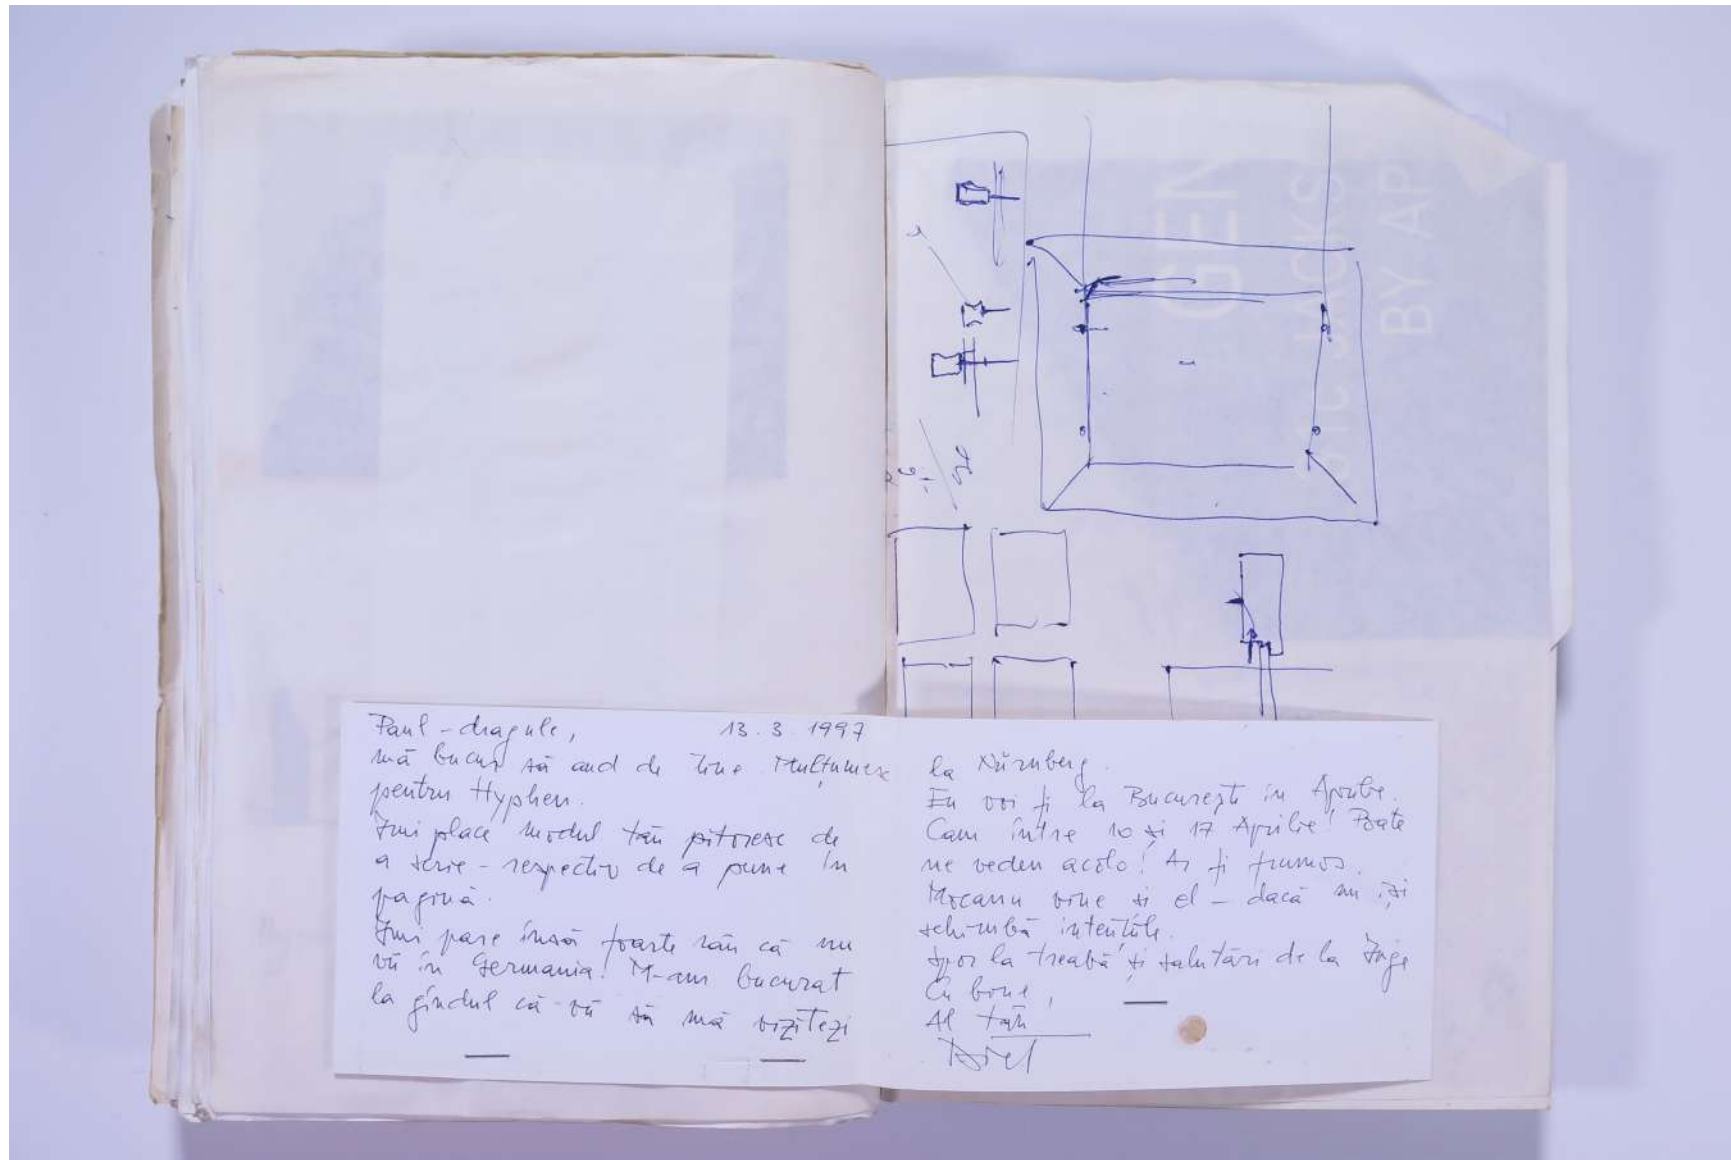 Paul - dragule, 13.3.1997
mă bucur să aud de tine. Mulțumesc
pentru Hyphen.
Îmi place modul tău pitoresc de
a scrie - respectiv de a pune în
pagină.
Îmi pare însă foarte rău că nu
vii în Germania! M-am bucurat
la gîndul că vii să mă vizitezi
la Nürnberg.
Eu voi fi la București în Aprilie.
Cam între 10 și 17 Aprilie! Poate
ne vedem acolo! Ar fi frumos.
vine și el - dacă nu își
schimbă intențiile.
Spor la treabă și salutări de la Inge
Cu bine,
Al tău
GEN
JACKS
BY AP